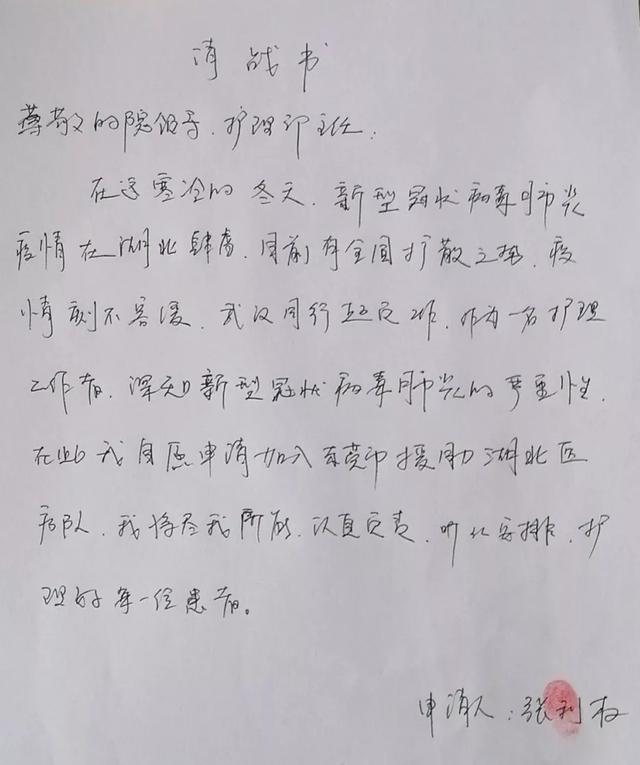 请战书
尊敬的院领导、护理部主任：
在这寒冷的冬天，新型冠状病毒肺炎
疫情在湖北肆虐，目前有全国扩散之势，疫
情刻不容缓，武汉同行工作，作为一名护理
工作者，深知新型冠状病毒肺炎的严重性，
在此我自愿申请加入东莞市援助湖北医
疗队，我将尽我所能，认真负责，听从安排，护
理好每一位患者。
申请人：张利权